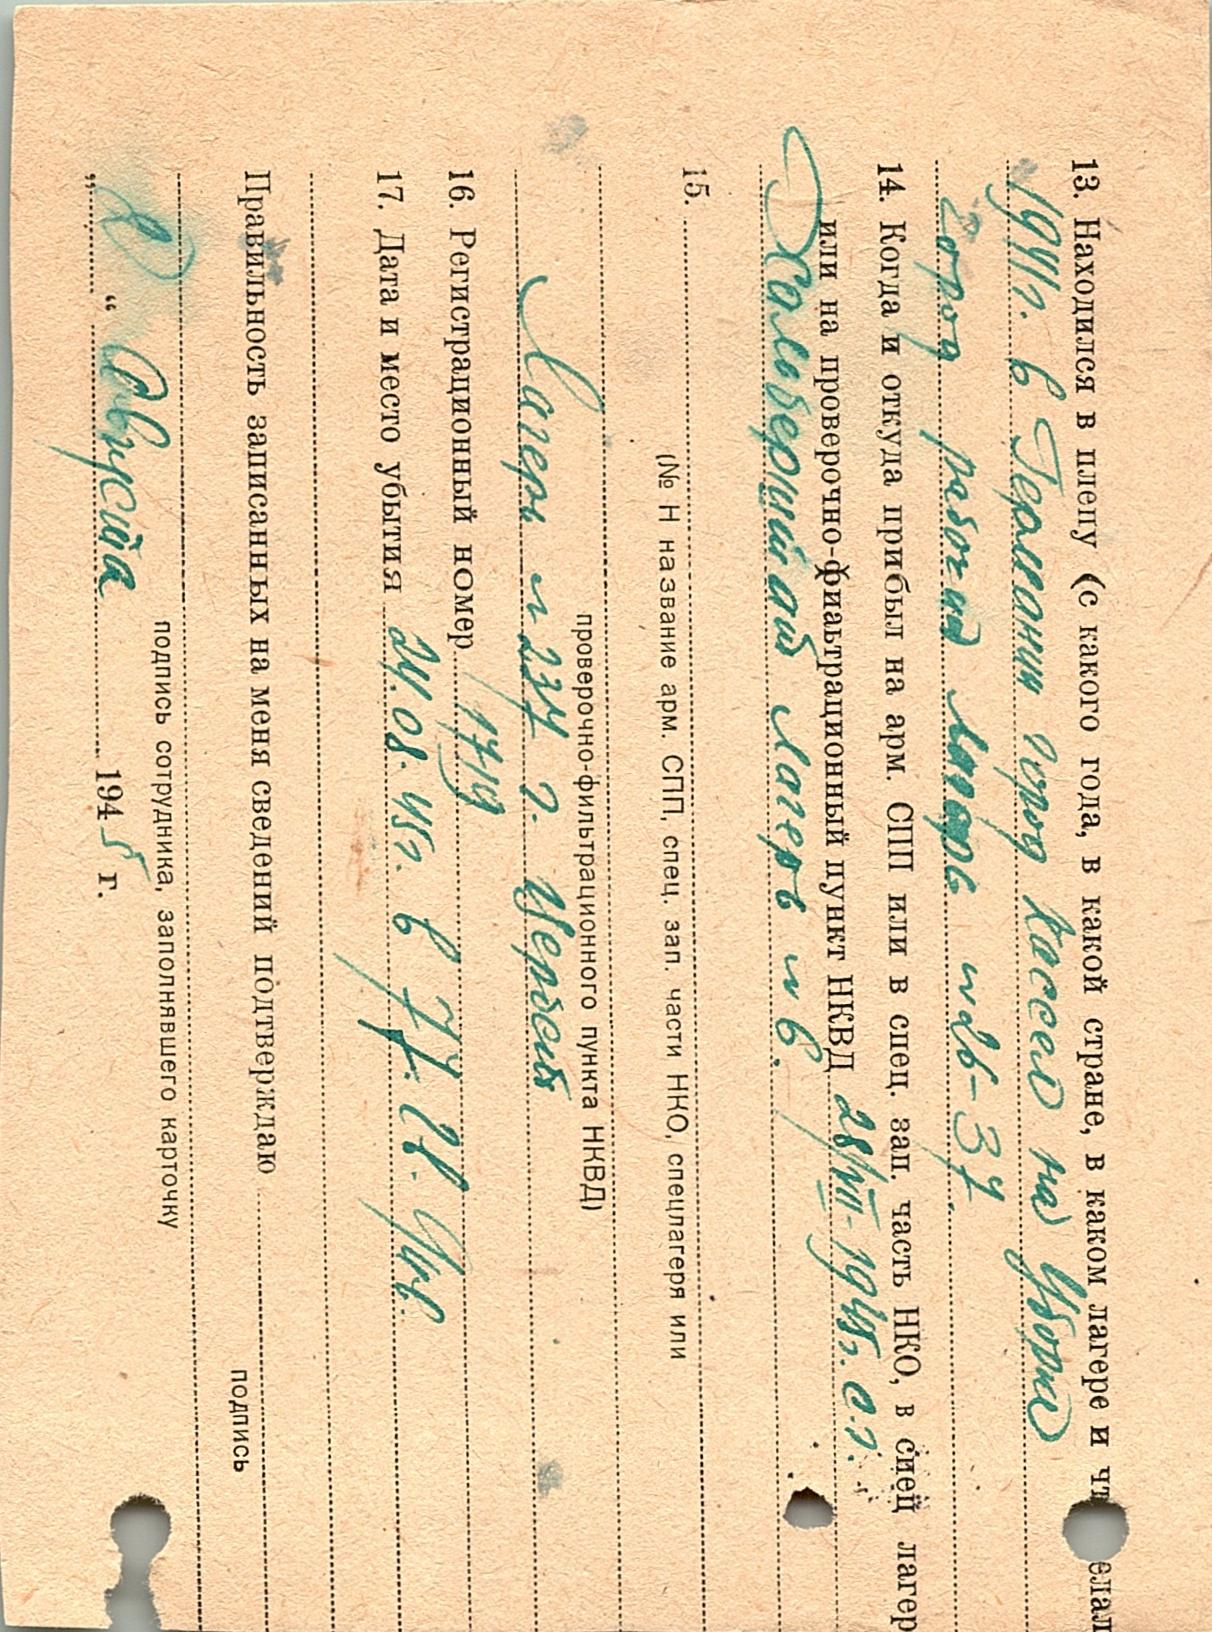 13. Находился в плену (с какого года, в какой стране, в каком лагере и чт елал
1941г. в Германии город Кассел на Уборка
город рабочий лагерь № 26-37.
14. Когда и откуда прибыл на арм. СПП или в спец. зап. часть НКО, в спец лагер
или на проверочно-фиаьтрационный пункт НКВД 28/VII-1945г. с.г.
лагерь № 6.
15.
(№ Н название арм. СПП, спец. зап. части НКО, спецлагеря или
проверочно-фильтрационного пункта НКВД)
Лагерь № 237 г. Цербст
16. Регистрационный номер 1719
17. Дата и место убытия 24.08.45г. в
Правильность записанных на меня сведений подтверждаю
подпись
подпись сотрудника, заполнявшего карточку
„ “ Августа 1945 г.